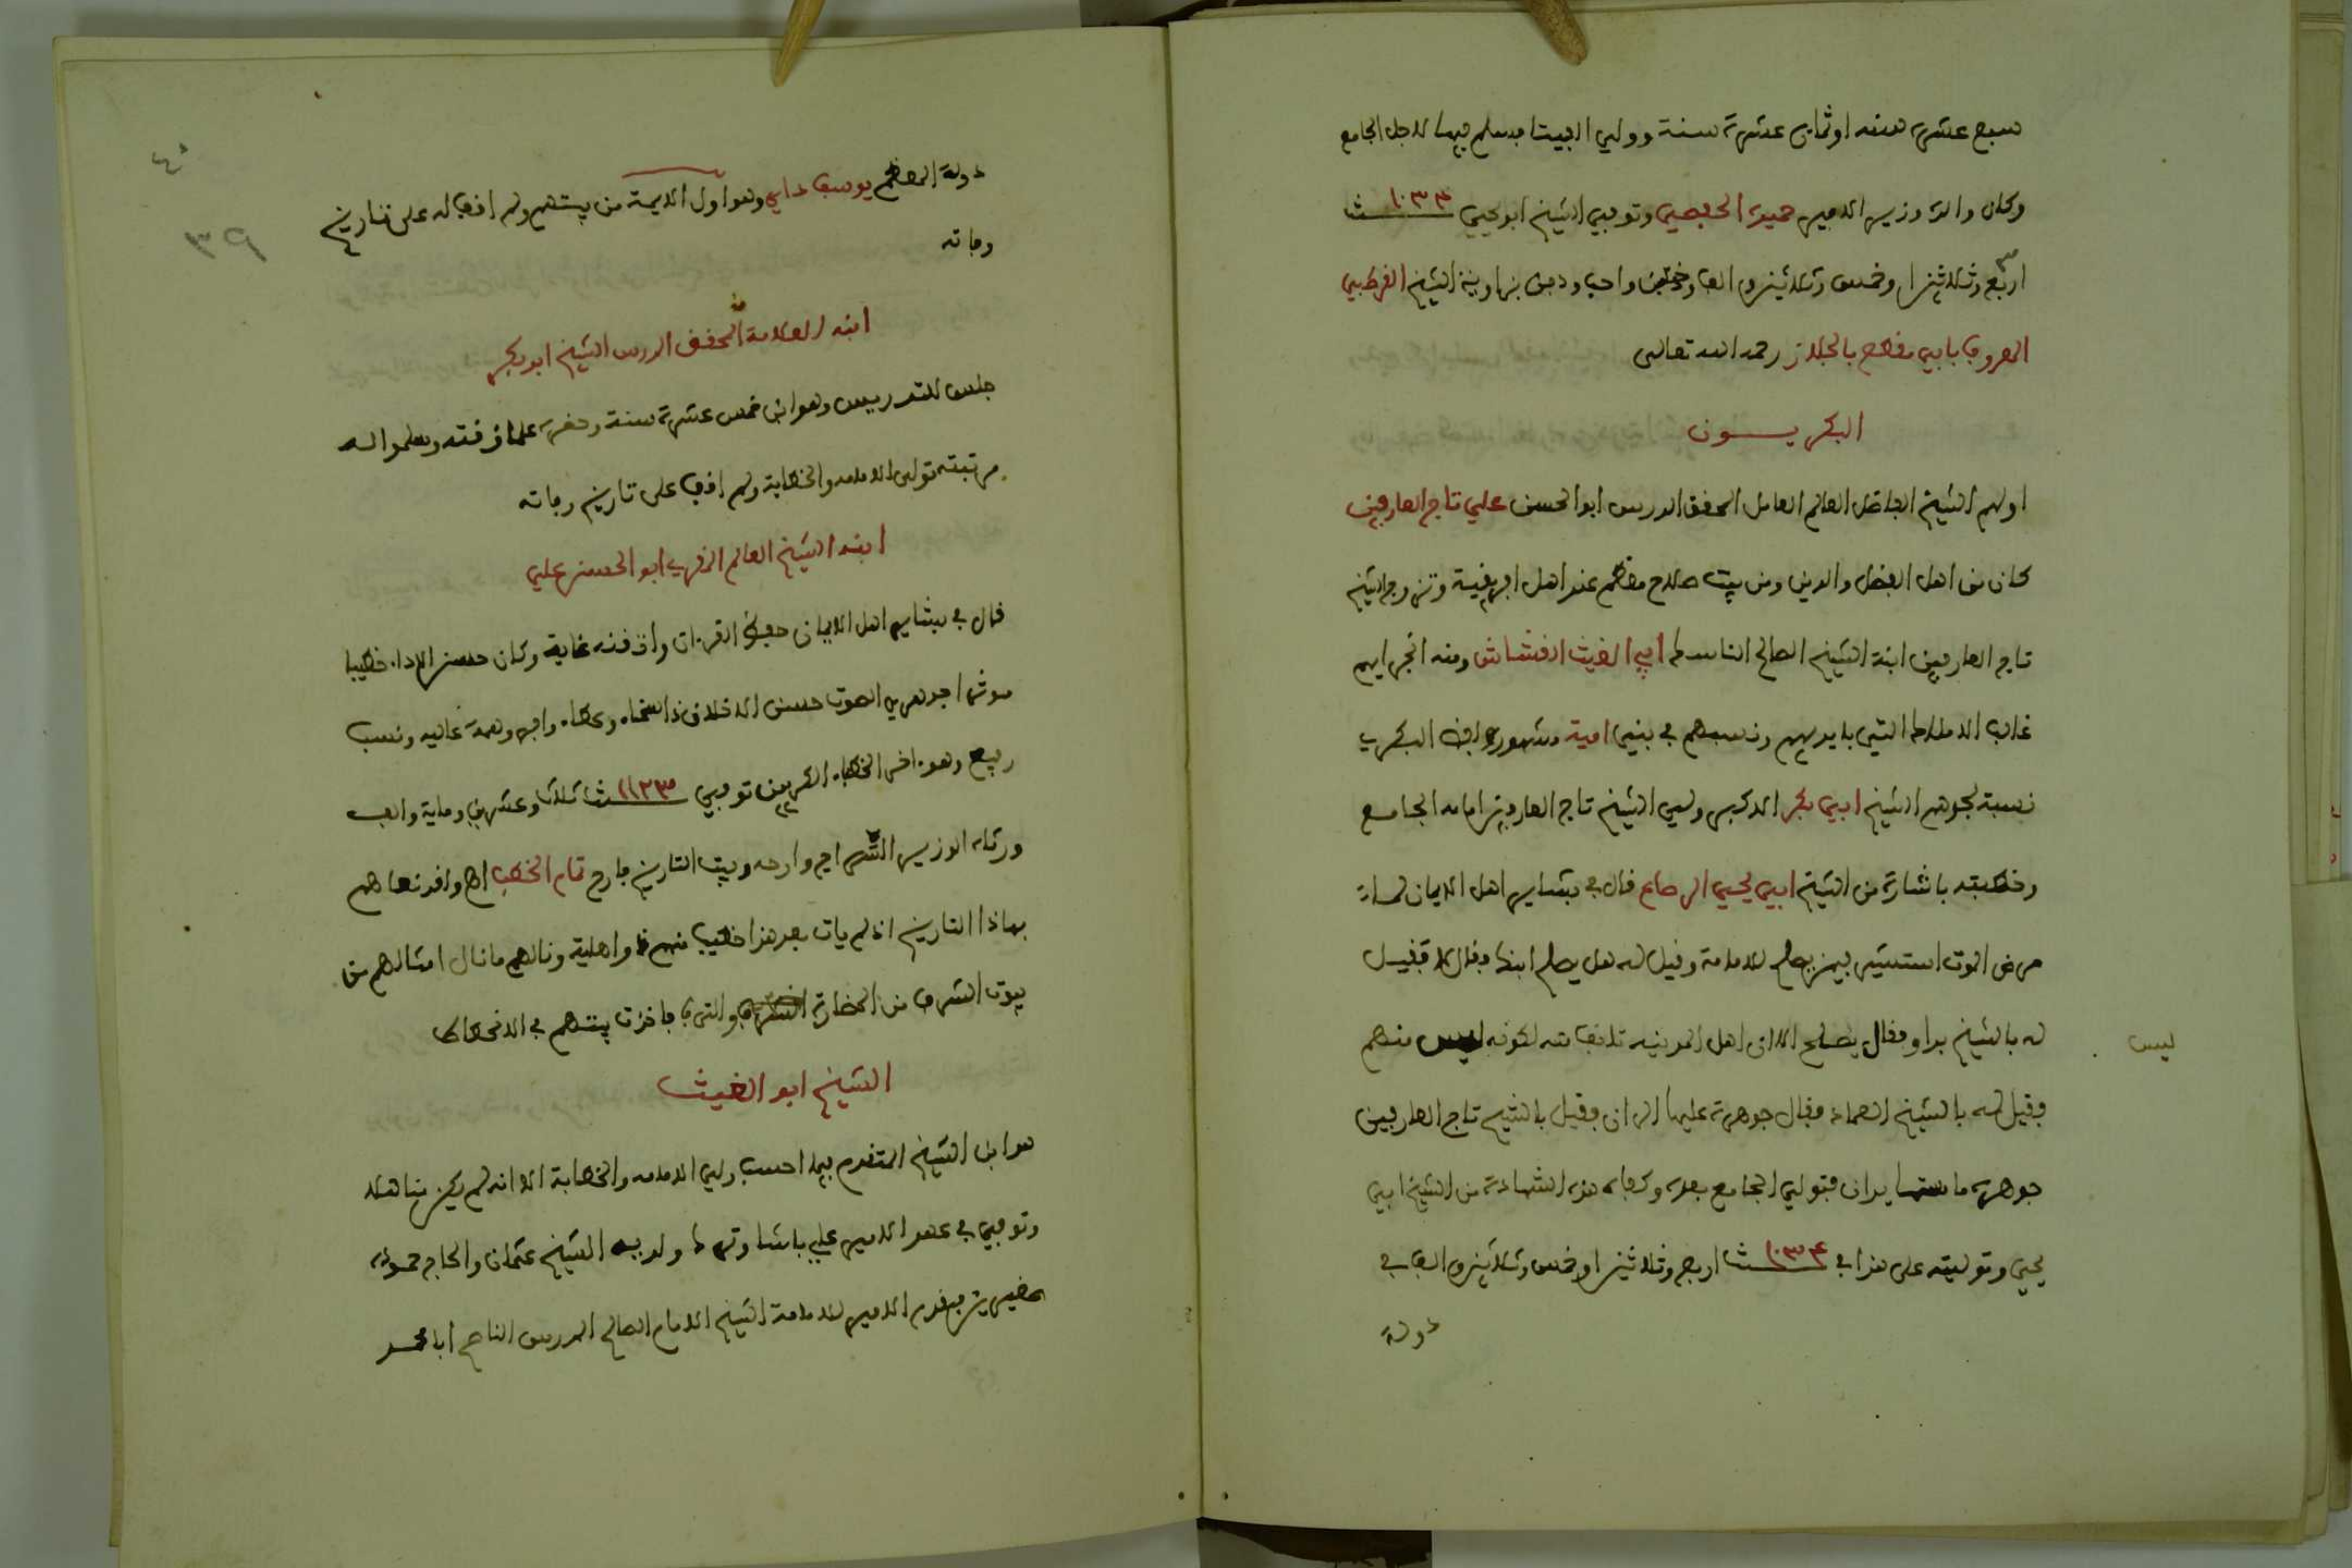 سبع عشرة سنه او ثمان عشرة سنة وولي البيتا فسلم فيها لاجل الجامع
وكان والده وزير الامير حميدة الحفصي وتوفي الشيخ ابو يحيى ١٠٣٣ سنة
اربع وثلاثين او خمس وثلاثين والف ودفن بزاوية الشيخ القرطبي
المعروف بابي مفطح بالجلاز رحمه الله تعالى
البكريـــون
اولهم الشيخ الفاضل العالم العامل المحقق المدرس ابو الحسن علي تاج العارفين
كان من اهل الفضل والدين ومن بيت صلاح معظم عند اهل افريقية وتزوج الشيخ
تاج العارفين ابنة الشيخ الصالح الناسك ابي الغيث القشاش ومنه انجر اليهم
غالب الاملاك التي بايديهم ونسبهم في بني امية مشهور ولفظ البكري
نسبة لجدهم الشيخ ابي بكر الاكبر ولي الشيخ تاج العارفين امامة الجامع
وخطبته باشارة من الشيخ ابي يحيى الرصاع قال في بشاير اهل الايمان لما
مرض الموت استشير فيمن يصلح للامامة وقيل له هل يصلح ابنك فقال لا فقيل
له بالشيخ براو فقال يصلح الا ان اهل المدينه تانف منه لكونه ليس منهم
ليس
فقيل له بالشيخ العماد فقال جوهرة عليها الران فقيل بالشيخ تاج العارفين
جوهرة ما مسها يران فتولى الجامع بعده وكفاه هذه الشهادة من الشيخ ابي
يحيى وتوليته على هذا في ١٠٣٤ سنة اربع وثلاثين او خمس وثلاثين والف في
دولة
٤٠
٣٩
دولة المعظم يوسف داي وهو اول الايمة من بيتهم ولم اقف له على تاريخ
وفاته
ابنه العلامة المحقق المدرس الشيخ ابو بكر
جلس للتدريس وهو ابن خمس عشرة سنة وحضره علما وقته وسلموا له
مرتبته تولى الامامه والخطابة ولم اقف على تاريخ وفاته
ابنه الشيخ العالم المقري ابو الحسن علي
قال في بشاير اهل الايمان حفظ القرءان واتقنه غاية وكان حسن الاداء خطيبا
موثرا جوهري الصوت حسن الاخلاق ذا سخاء وعطاء وافر وهمة عاليه ونسب
رفيع وهو ءاخر الخطباء البكريين توفي ١١٢٣ سنة ثلاث وعشرين وماية والف
ورثاه الوزير السراج وارخه وبيت التاريخ فارح تمام الخطب اه ولقد نعاهم
بهاذا التاريخ اذ لم يات بعد هذا خطيب منهم ذو اهلية ونالهم ما نال امثالهم من
بيوت الشرف من الحضارة والترف فاخذت بيتهم في الانحطاط
الشيخ ابو الغيث
هو ابن الشيخ المتقدم فيما احسب ولي الامامه والخطابة الا انه لم يكن متاهلا
وتوفي في عهد الامير علي باشا وترك ولديه الشيخ عثمان والحاج حموده
صغيرين فقدم الامير للامامة الشيخ الامام العالم المدرس الناصح ابا محمد